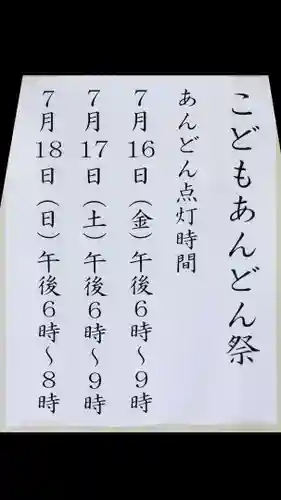 こどもあんどん祭
あんどん点灯時間
7月16日（金）午後6時〜9時
7月17日（土）午後6時〜9時
7月18日（日）午後6時〜8時